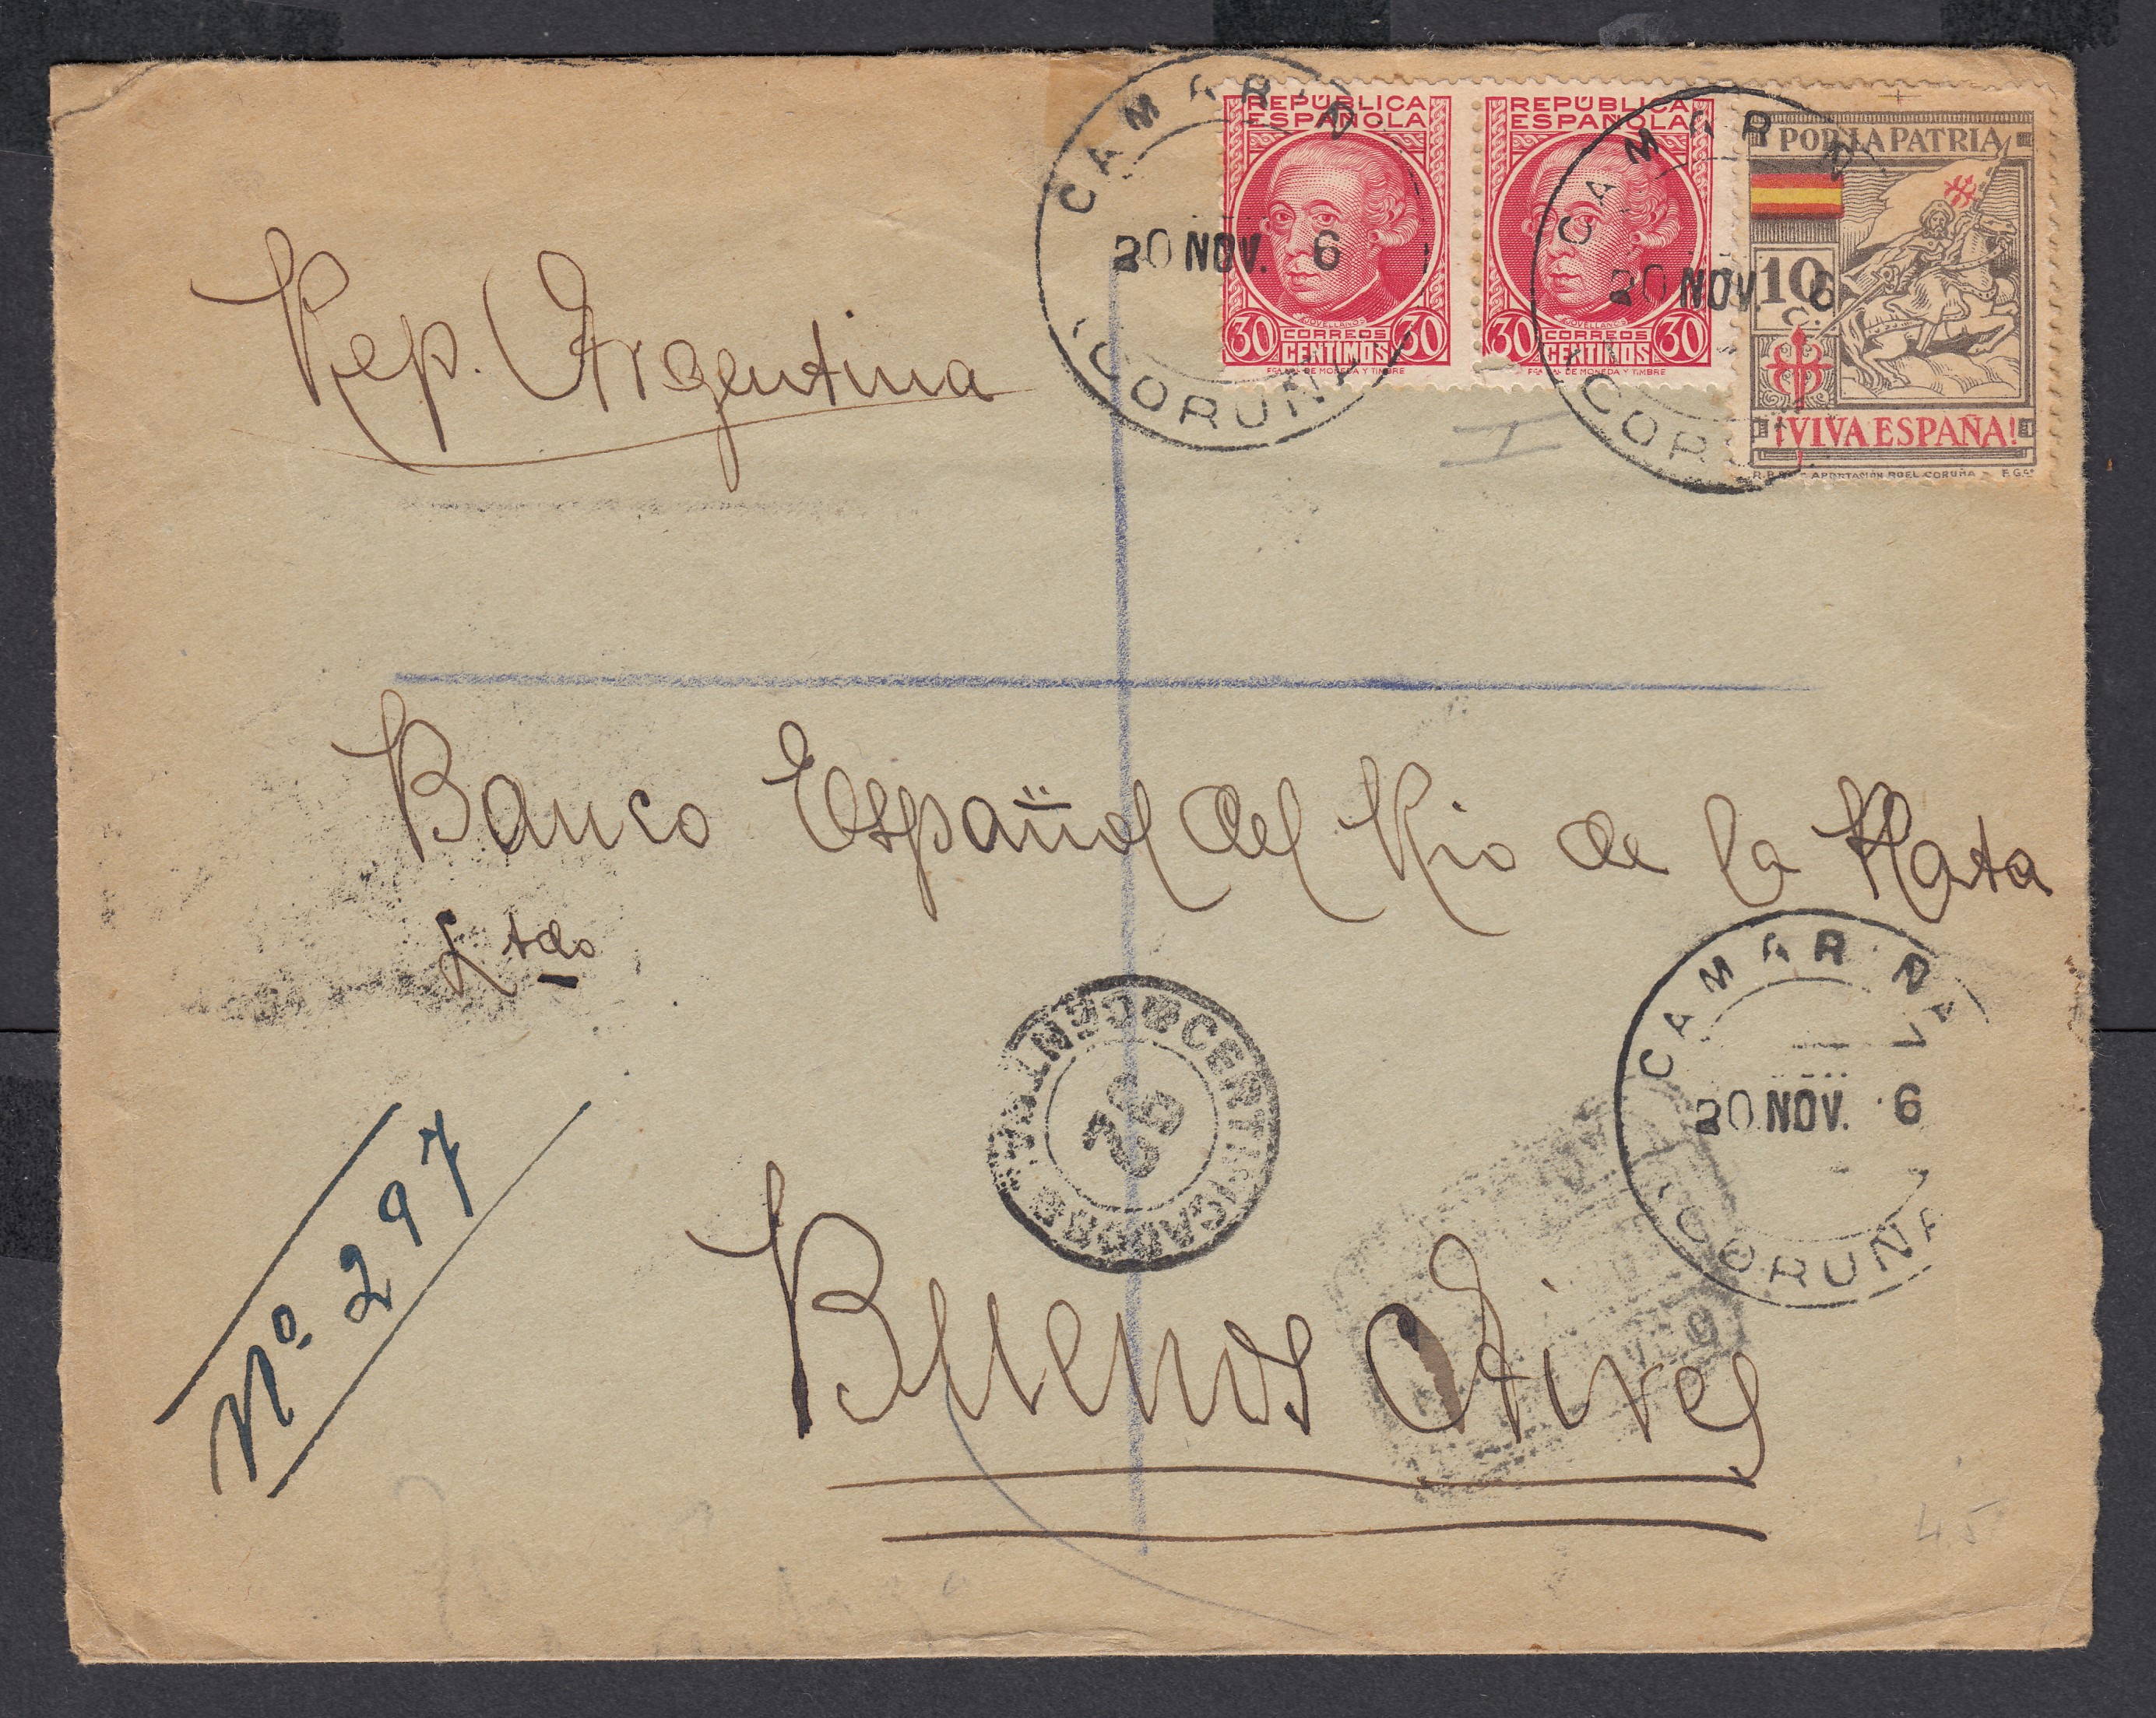 REPÚBLICA
ESPAÑOLA
JOVELLANOS
30 CORREOS 30
CENTIMOS
FCA. NAL. DE MONEDA Y TIMBRE
REPÚBLICA
ESPAÑOLA
JOVELLANOS
30 CORREOS 30
CENTIMOS
FCA. NAL. DE MONEDA Y TIMBRE
POR LA PATRIA
10
C.
¡VIVA ESPAÑA!
APORTACIÓN ROEL CORUÑA
F.G.
CAMARIÑA
20 NOV. 6
(CORUÑA
CAMARIÑ
20 NOV. 6
(CORU
Rep. Argentina
Banco Español del Rio de la Plata
Ltdo
CAMARIÑA
20 NOV. 6
(CORUÑA
CERTIFICADOS
CENTRAL
Nº. 297
Buenos Aires
45